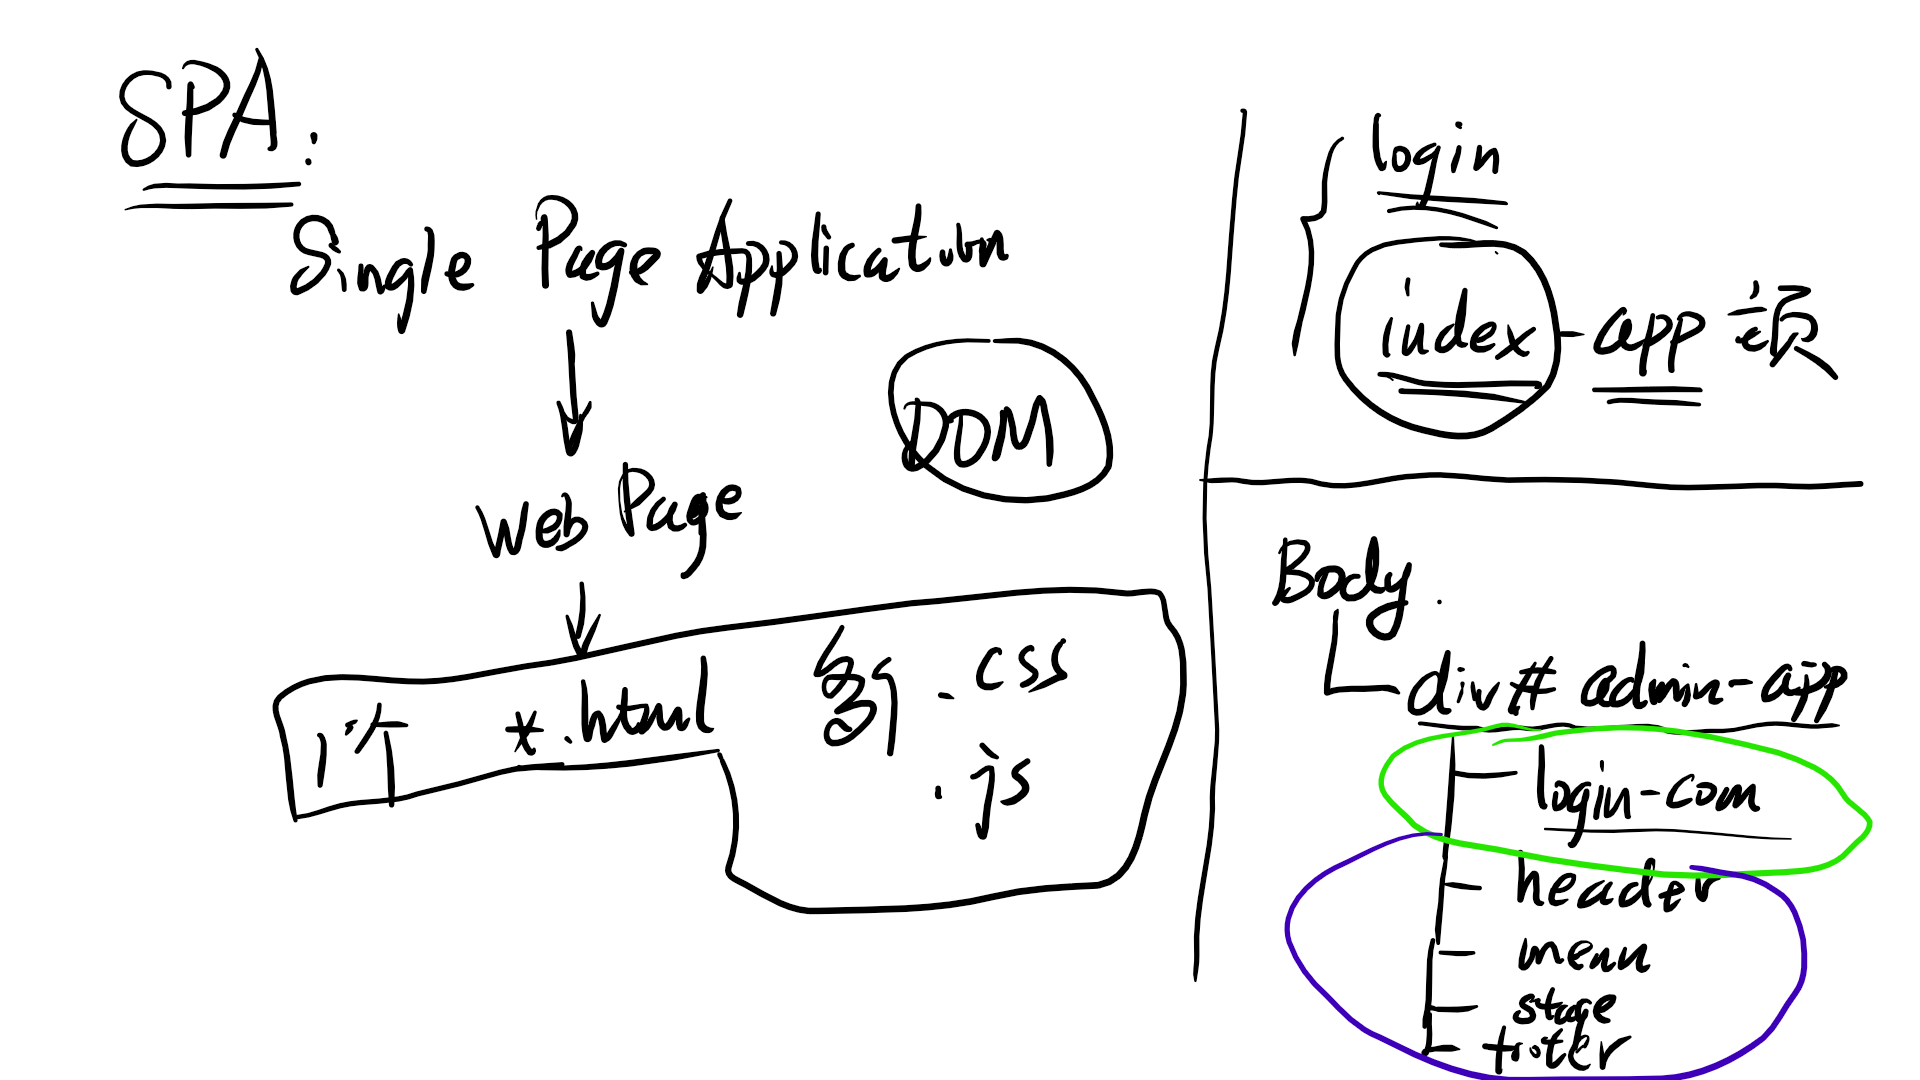 SPA:
Single Page Application
DOM
Web Page
1个 *.html
.css
.js
login
index - app 页
Body.
div# admin-app
login-com
header
menu
stage
footer